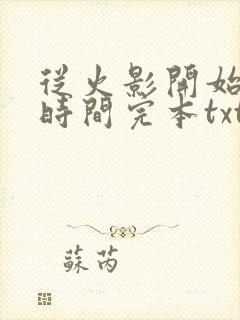 從火影開始
時間完本txt
蘇芮